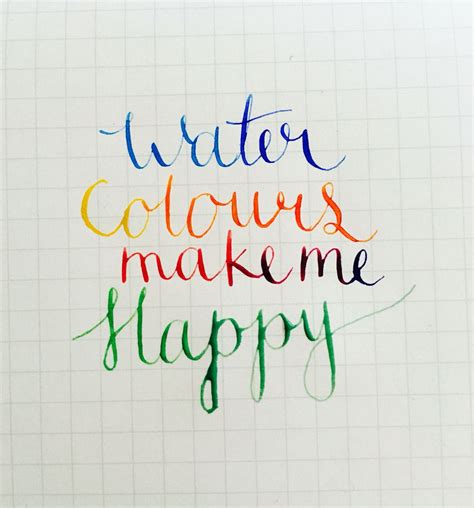 Water
Colours
make me
Happy